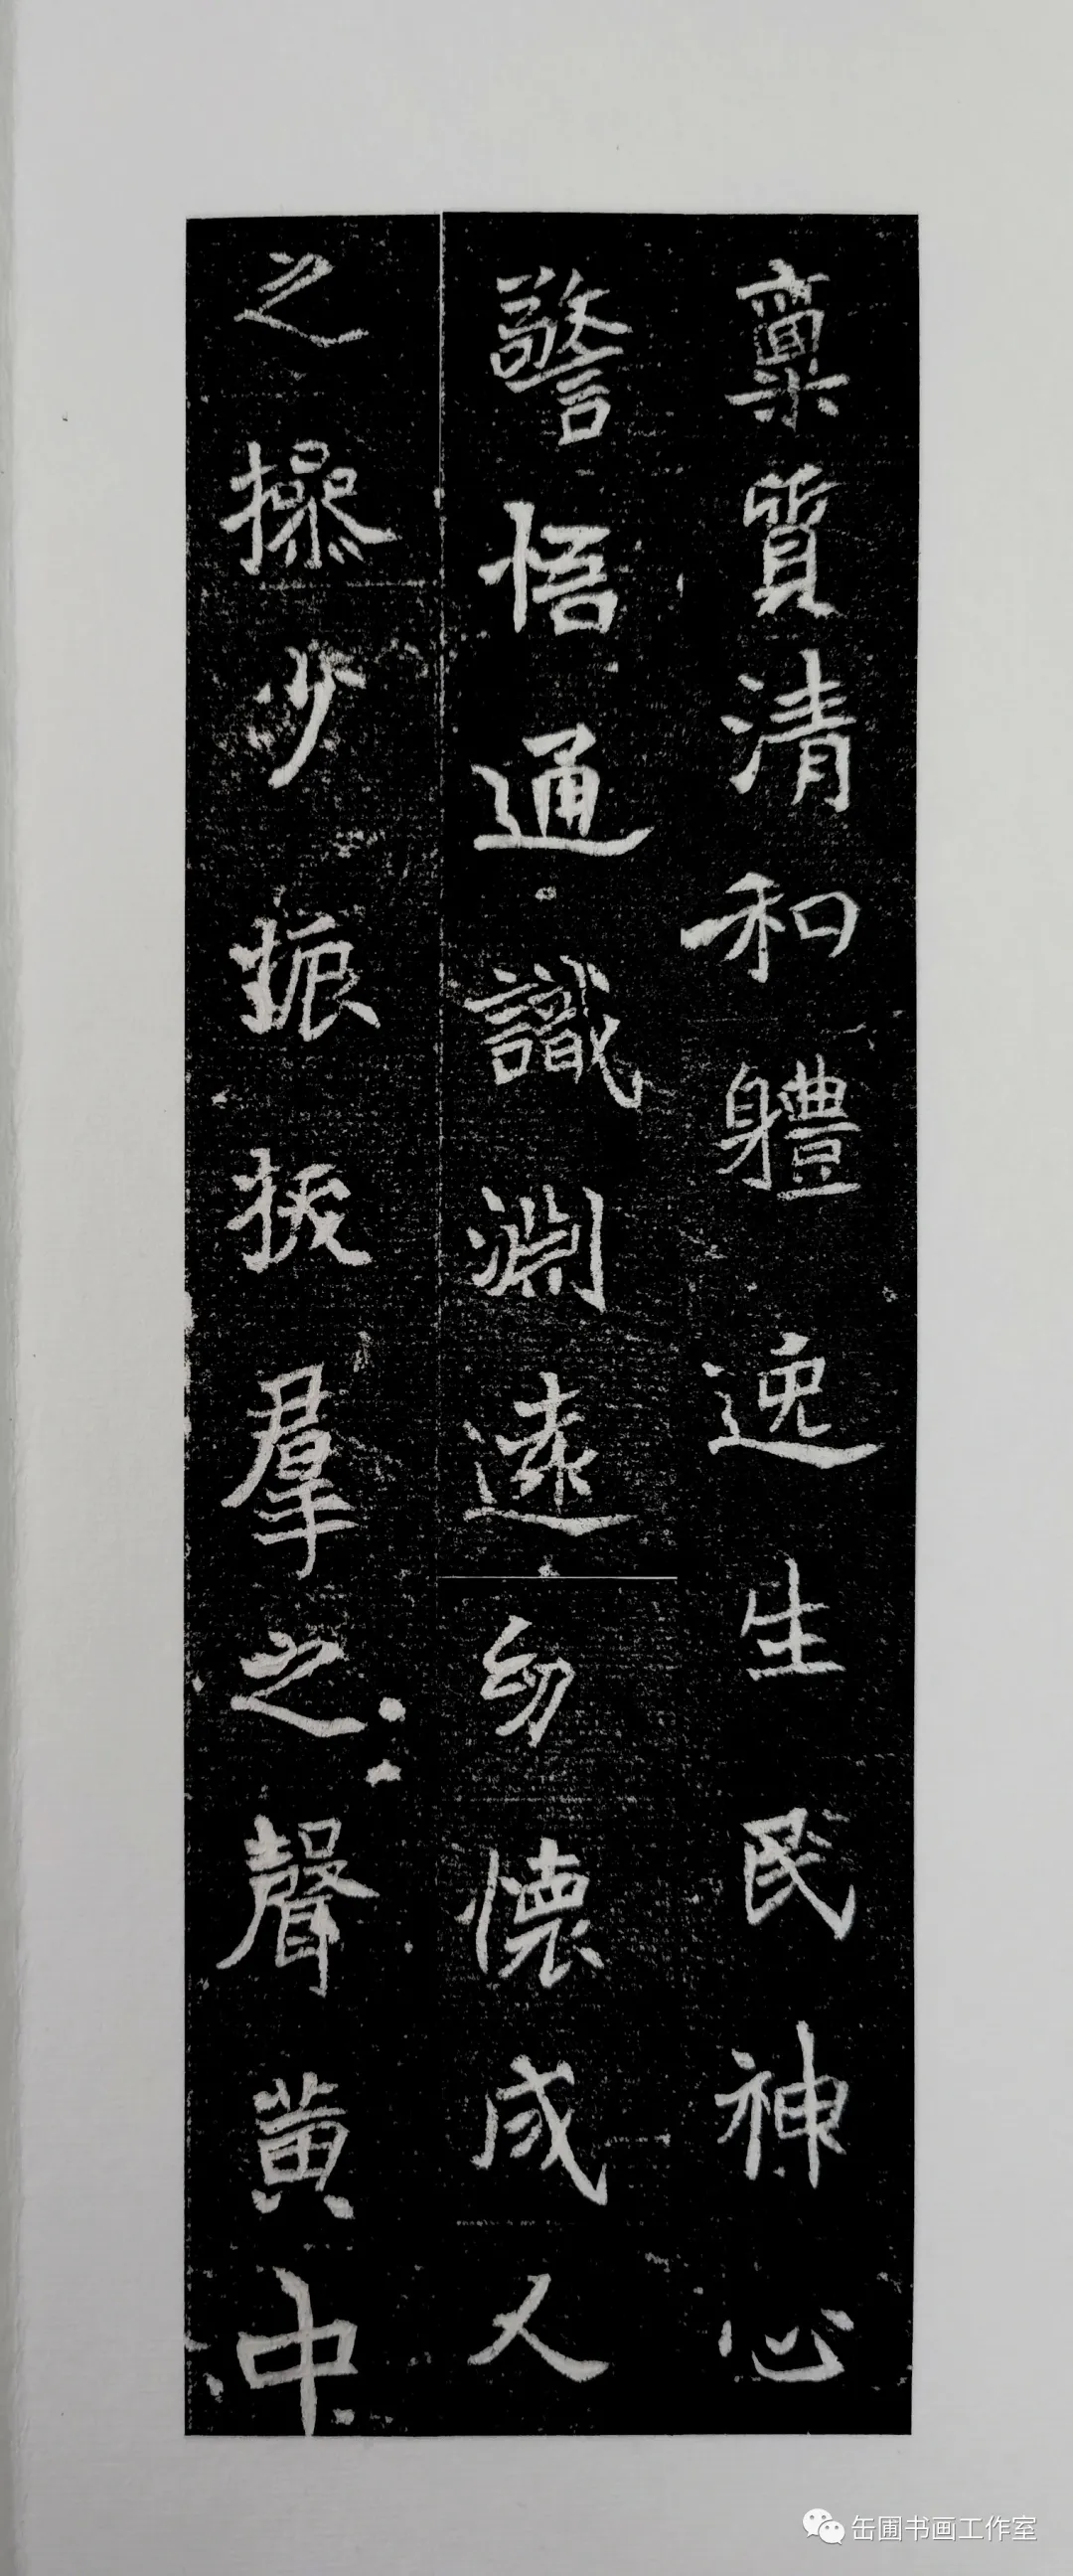 稟質清和軆逸生民神心
警悟通識淵遠幼懷成人
之操少振拔羣之聲黃中
缶圃书画工作室